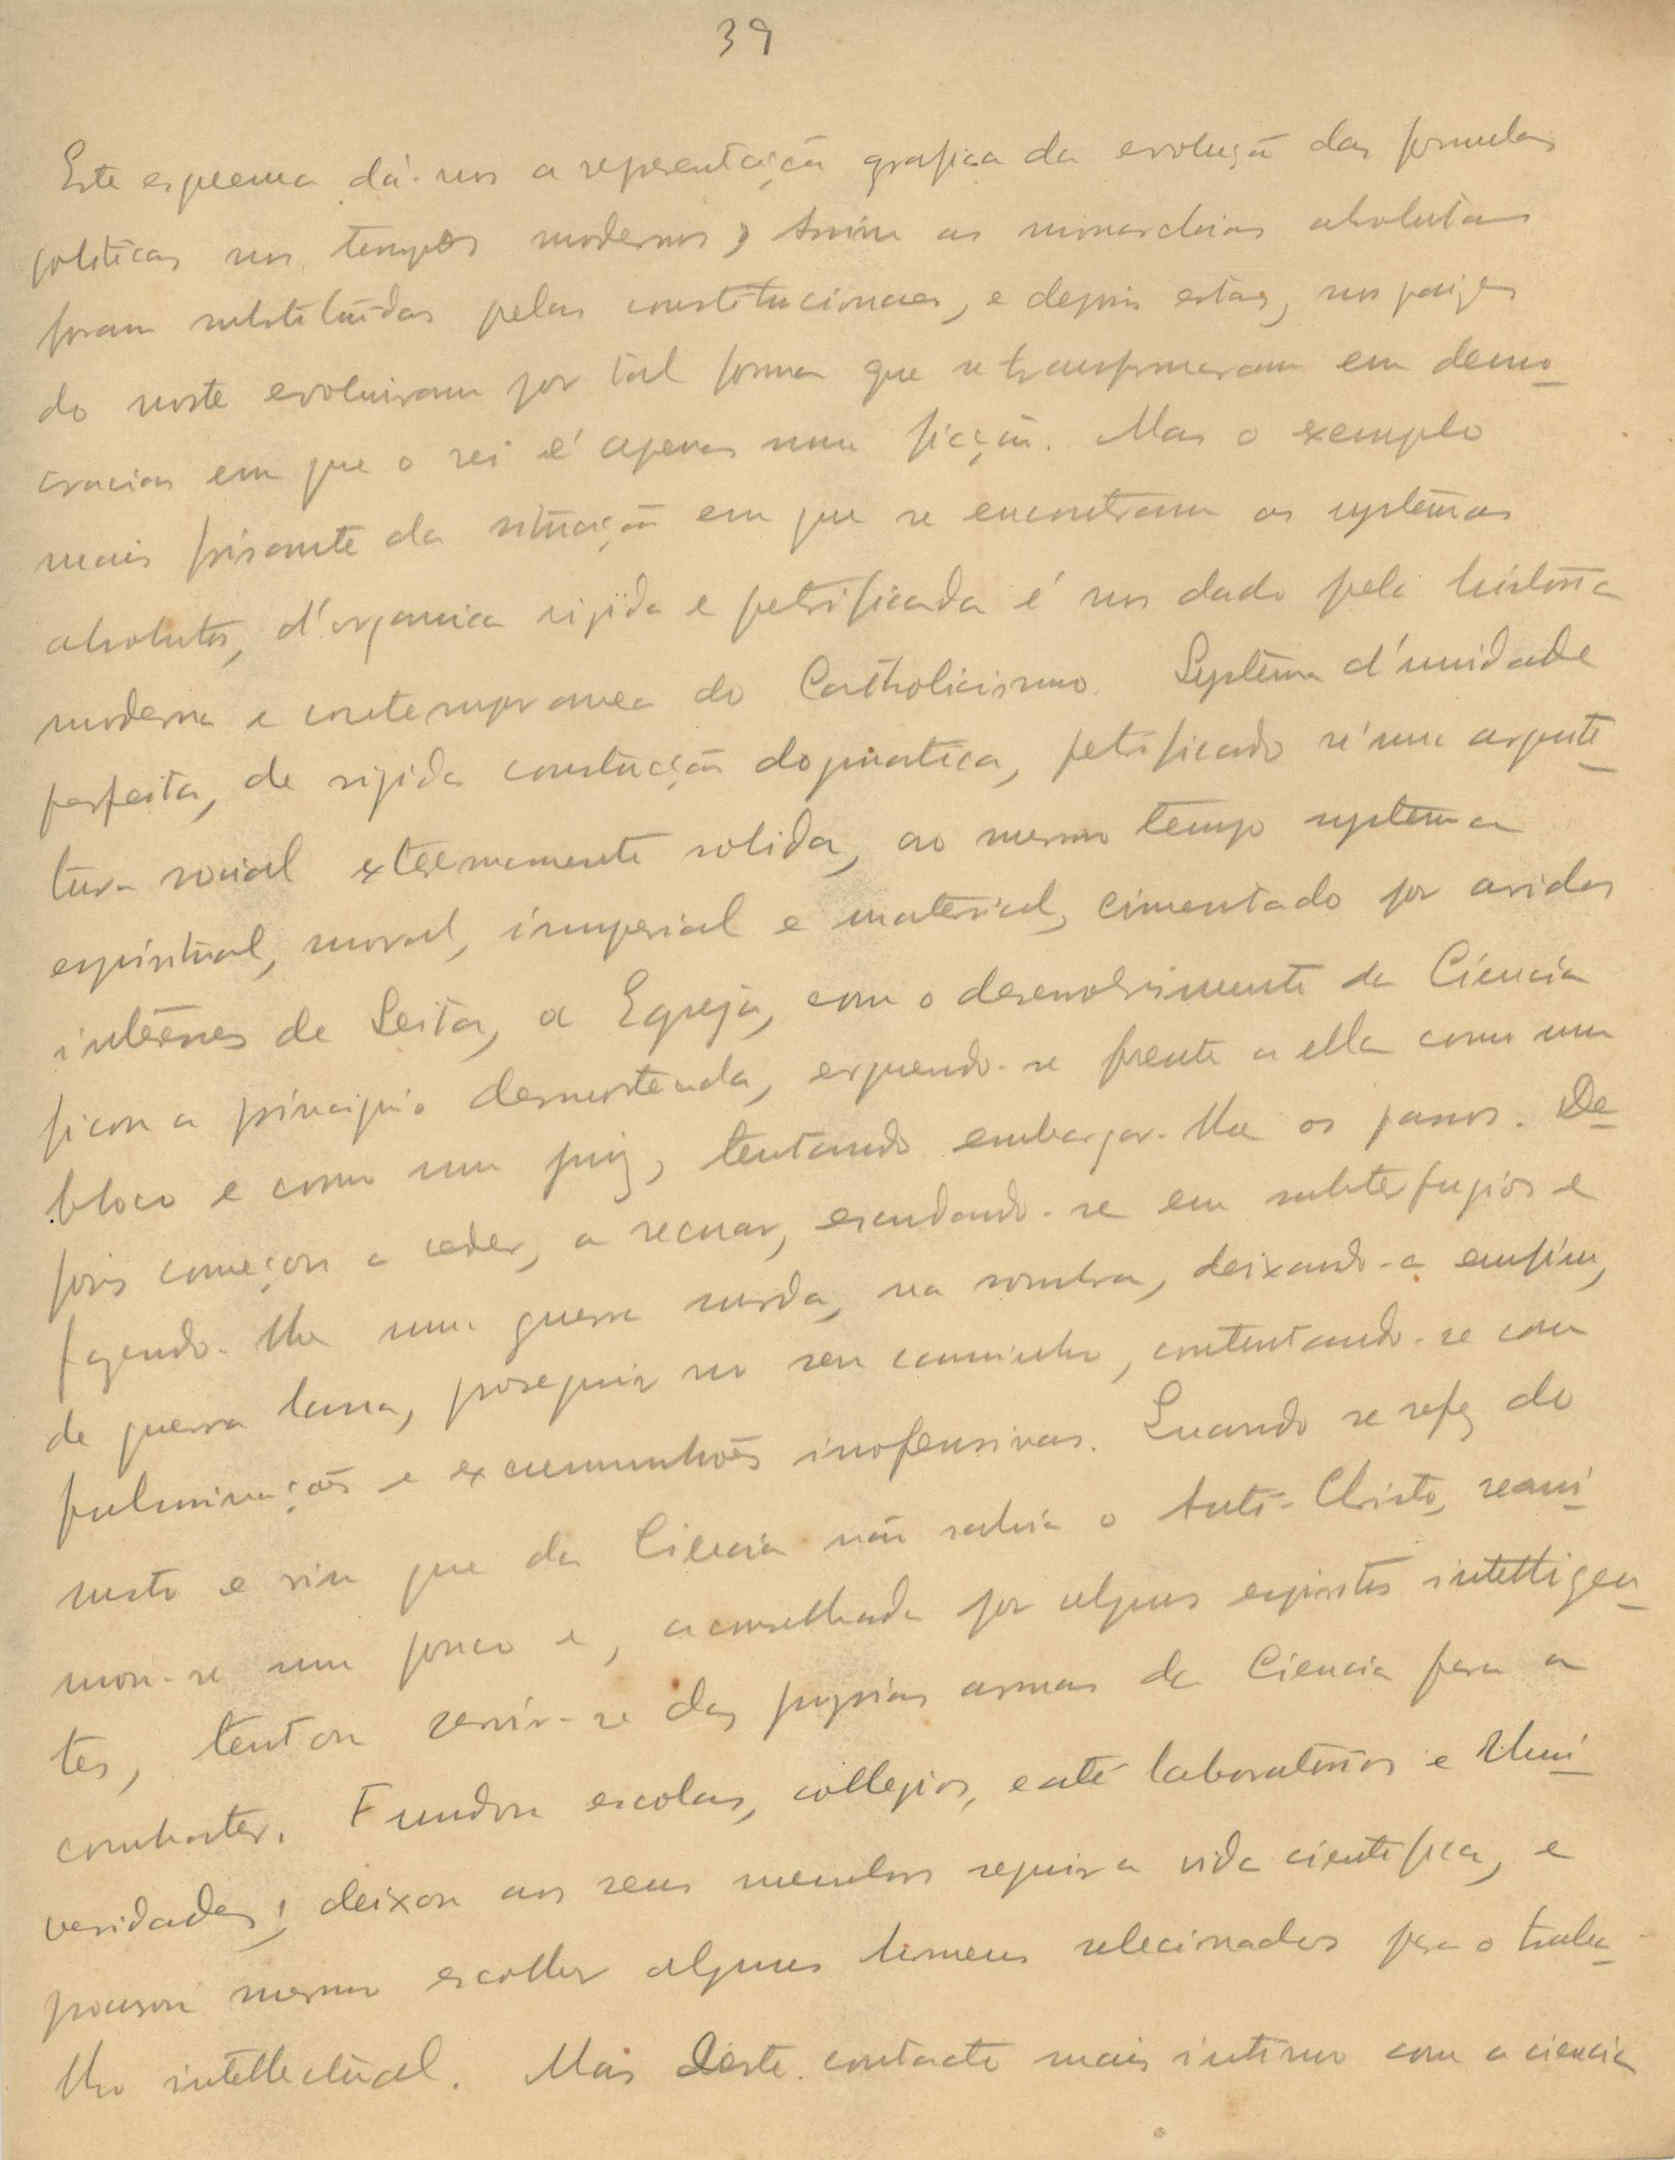 39
Este esquema dá-nos a representação grafica da evolução das formulas
politicas nos tempos modernos; Assim as monarchias absolutas
foram substituidas pelas constitucionaes, e depois estas, nos paizes
do norte evoluiram por tal forma que se transformaram em demo-
cracias em que o rei é apenas uma ficção. Mas o exemplo
mais frisante da situação em que se encontram os systemas
absolutos, d'organica rigida e petrificada é nos dado pela historia
moderna e contemporanea do Catholicismo. Systema d'unidade
perfeita, de rigida construcção dogmatica, petrificado n'uma arquite-
tura social extremamente solida, ao mesmo tempo systema
espiritual, moral, imperial e material, cimentado por avidos
interesses de Seita, a Egreja, com o desenvolvimento da Ciencia
ficou a principio desnorteada, erguendo-se frente a ella como um
bloco e como um juiz, tentando embargar-lhe os passos. De-
pois começou a ceder, a recuar, escudando-se em subterfugios e
fazendo-lhe uma guerra surda, na sombra, deixando-a emfim,
de guerra lassa, proseguir no seu caminho, contentando-se com
fulminações e excumunhões inofensivas. Quando se refez do
susto e viu que da Ciencia não sahia o Anti-Christo, reani-
mou-se um pouco e, aconselhada por alguns espiritos intelligen-
tes, tentou servir-se das proprias armas da Ciencia para a
combater. Fundou escolas, collegios, e até laboratorios e Uni-
versidades; deixou aos seus membros seguir a vida cientifica, e
procurou mesmo escolher alguns homens selecionados para o traba-
lho intellectual. Mas deste contacto mais intimo com a ciencia